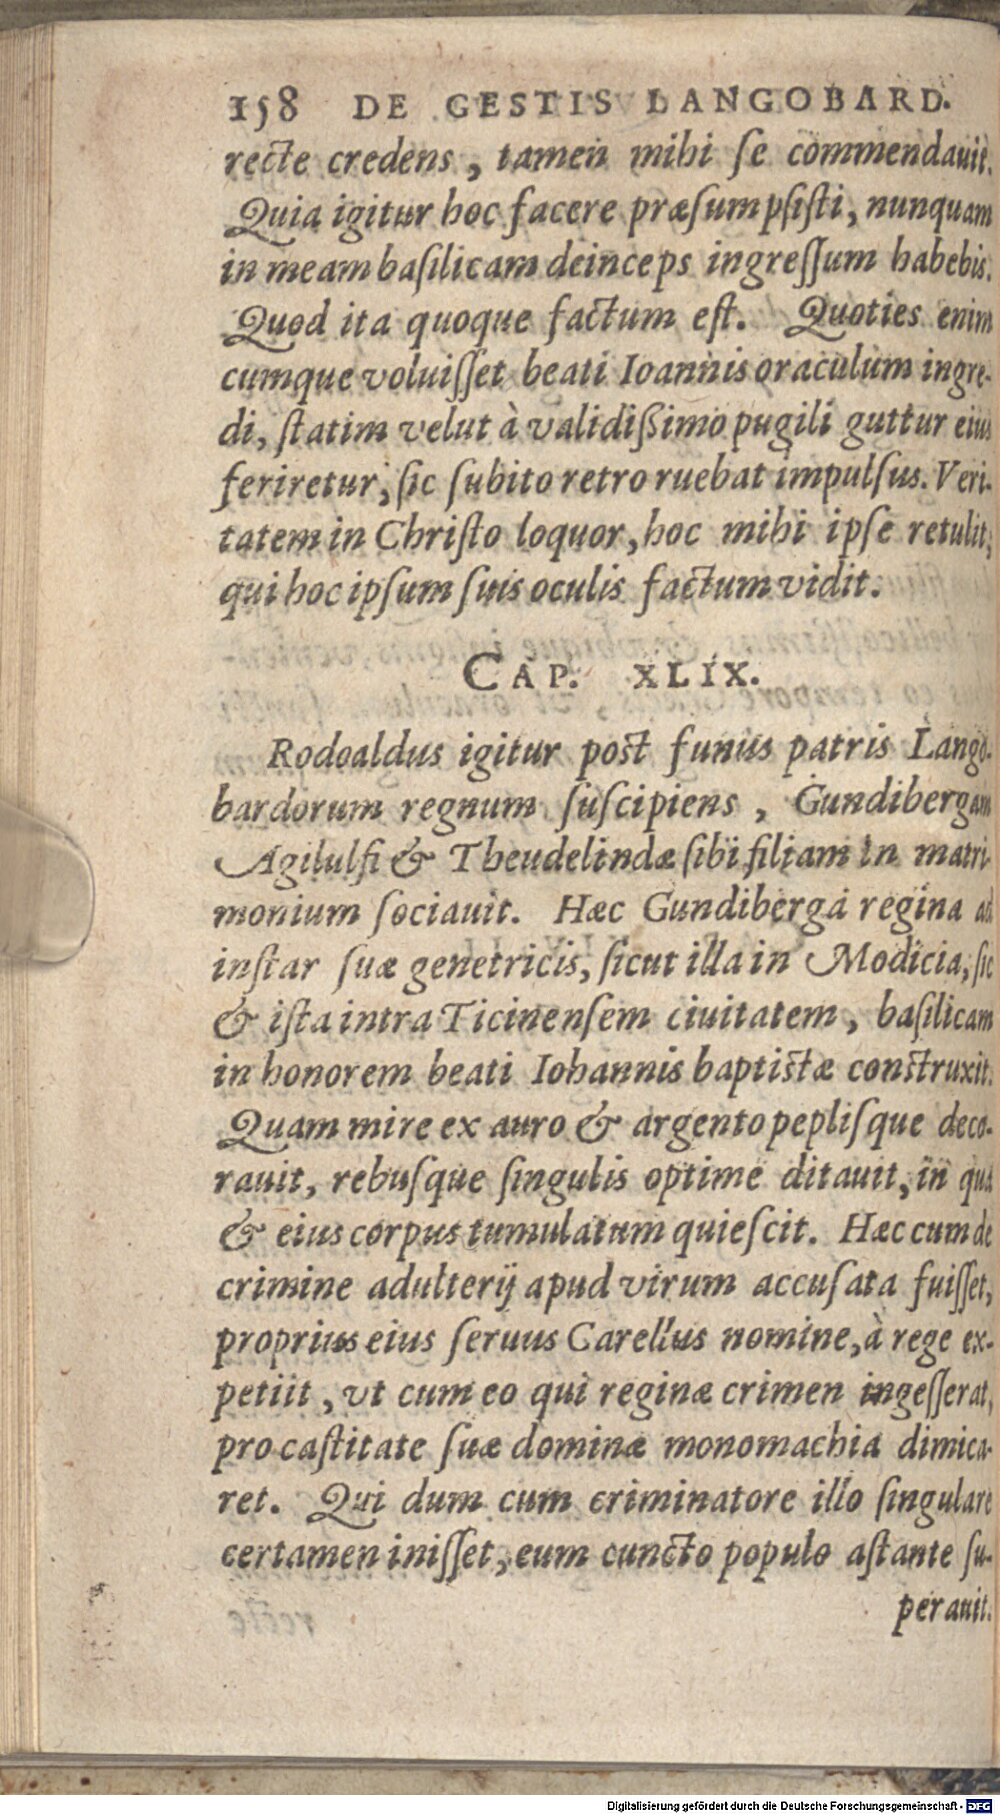 158 DE GESTIS LANGOBARD.
recte credens, tamen mihi se commendauit.
Quia igitur hoc facere præsumpsisti, nunquam
in meam basilicam deinceps ingressum habebis.
Quod ita quoque factum est. Quoties enim
cumque voluisset beati Ioannis oraculum ingre-
di, statim velut à validißimo pugili guttur eius
feriretur, sic subito retro ruebat impulsus. Veri-
tatem in Christo loquor, hoc mihi ipse retulit,
qui hoc ipsum suis oculis factum vidit.
CAP. XLIX.
Rodoaldus igitur post funus patris Lango-
bardorum regnum suscipiens, Gundibergam
Agilulfi & Theudelindæ sibi filiam in matri-
monium sociauit. Hæc Gundiberga regina ad
instar suæ genetricis, sicut illa in Modicia, sic
& ista intra Ticinensem ciuitatem, basilicam
in honorem beati Iohannis baptistæ construxit.
Quam mire ex auro & argento peplisque deco-
rauit, rebusque singulis optime ditauit, in qua
& eius corpus tumulatum quiescit. Hæc cum de
crimine adulterij apud virum accusata fuisset,
proprius eius seruus Carellus nomine, à rege ex-
petiit, vt cum eo qui reginæ crimen ingesserat,
pro castitate suæ dominæ monomachia dimica-
ret. Qui dum cum criminatore illo singulare
certamen inisset, eum cuncto populo astante su-
perauit.
Digitalisierung gefördert durch die Deutsche Forschungsgemeinschaft - DFG